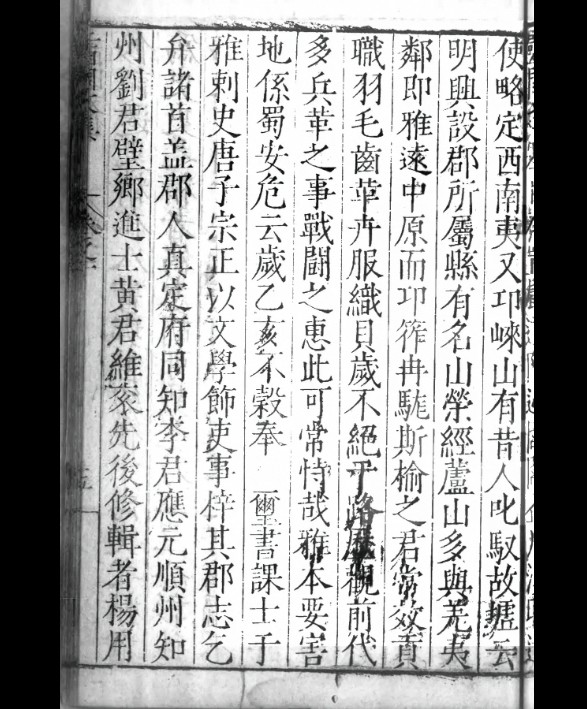 使略定西南夷又卭崍山有昔人叱馭故壚云
明興設郡所屬縣有名山榮經蘆山多與羗夷
鄰即雅遠中原而卭筰冉駹斯榆之君常效貢
職羽毛齒革卉服織貝歲不絕于路歷觀前代
多兵革之事戰鬬之惠此可常恃哉雅本要害
地係蜀安危云歲乙亥不穀奉 璽書課士于
雅剌史唐子宗正以文學飾吏事梓其郡志乞
弁諸首盖郡人真定府同知李君應元順州知
州劉君璧鄉進士黃君維衮先後修輯者楊用